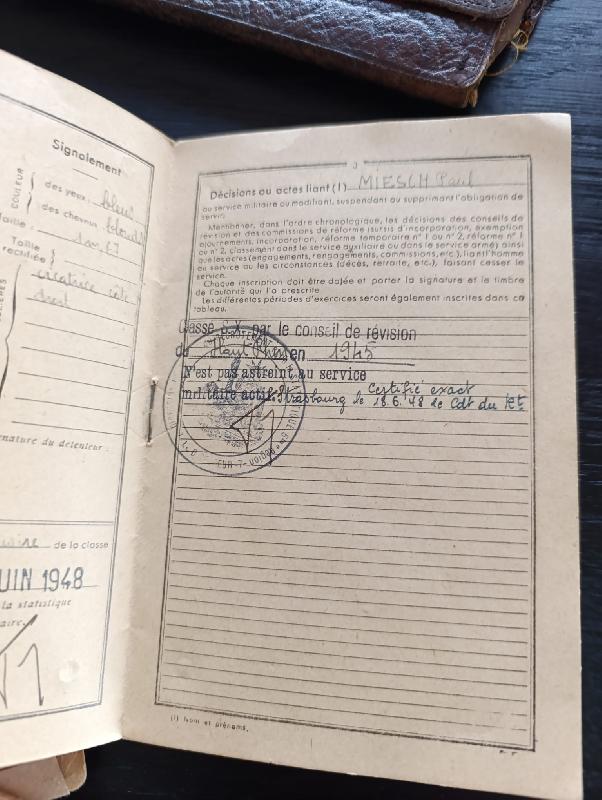 Signalement
COULEUR
des yeux: bleus
des cheveux blonds
Taille: 1m,67
Taille
rectifiée
cicatrice côté
droit
Signature du détenteur:
de la classe
JUIN 1948
la statistique
3
Décisions ou actes liant (1) MIESCH Paul
au service militaire ou modifiant, suspendant ou supprimant l'obligation de
servir.
Mentionner, dans l'ordre chronologique, les décisions des conseils de
révision et des commissions de réforme (sursis d'incorporation, exemption
ajournements, incorporation, réforme temporaire n° 1 ou n° 2, réforme n° 1
ou n° 2, classement dans le service auxiliaire ou dans le service armé) ainsi
que les actes (engagements, rengagements, commissions, etc.), liant l'homme
au service ou les circonstances (décès, retraite, etc.), faisant cesser le
service.
Chaque inscription doit être datée et porter la signature et le timbre
de l'autorité qui l'a prescrite.
Les différentes périodes d'exercices seront également inscrites dans ce
tableau.
Classé S.X. par le conseil de révision
de Haut Rhin en 1945
N'est pas astreint au service
militaire actif. Certifié exact
Strasbourg le 18.6.48 le Cdt du Rt
(1) Nom et prénoms.